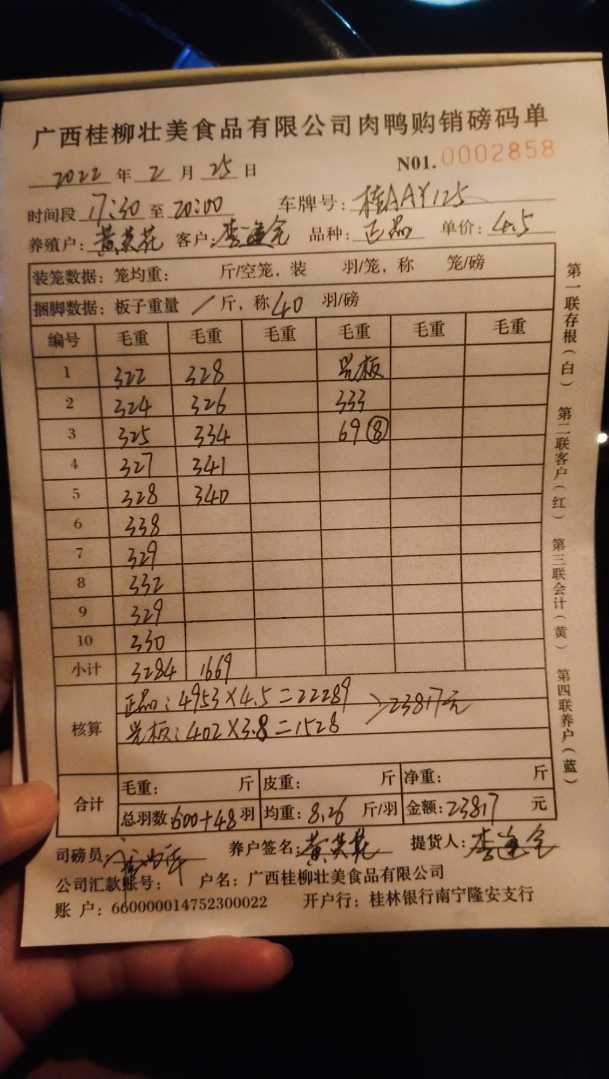 广西桂柳壮美食品有限公司肉鸭购销磅码单
2022 年 2 月 25 日 N01. 0002858
时间段 17:30 至 20:00 车牌号: 桂AAY125
养殖户: 黄英花 客户: 李 品种: 正品 单价: 4.5
装笼数据: 笼均重: 斤/空笼, 装 羽/笼, 称 笼/磅
捆脚数据: 板子重量 / 斤, 称 40 羽/磅
编号 毛重 毛重 毛重 毛重 毛重 毛重
1 322 328 板
2 324 326 333
3 325 334 69 ⑧
4 327 341
5 328 340
6 338
7 329
8 332
9 329
10 330
小计 3284 1669
核算 正品: 4953×4.5=22289 >23817元
板: 402×3.8=1528
合计 毛重: 斤 皮重: 斤 净重: 斤
总羽数 600+48 羽 均重: 8.26 斤/羽 金额: 23817 元
司磅员 养户签名: 黄英花 提货人: 李
公司汇款账号: 户名: 广西桂柳壮美食品有限公司
账 户: 660000014752300022 开户行: 桂林银行南宁隆安支行
第一联存根(白) 第二联客户(红) 第三联会计(黄) 第四联养户(蓝)